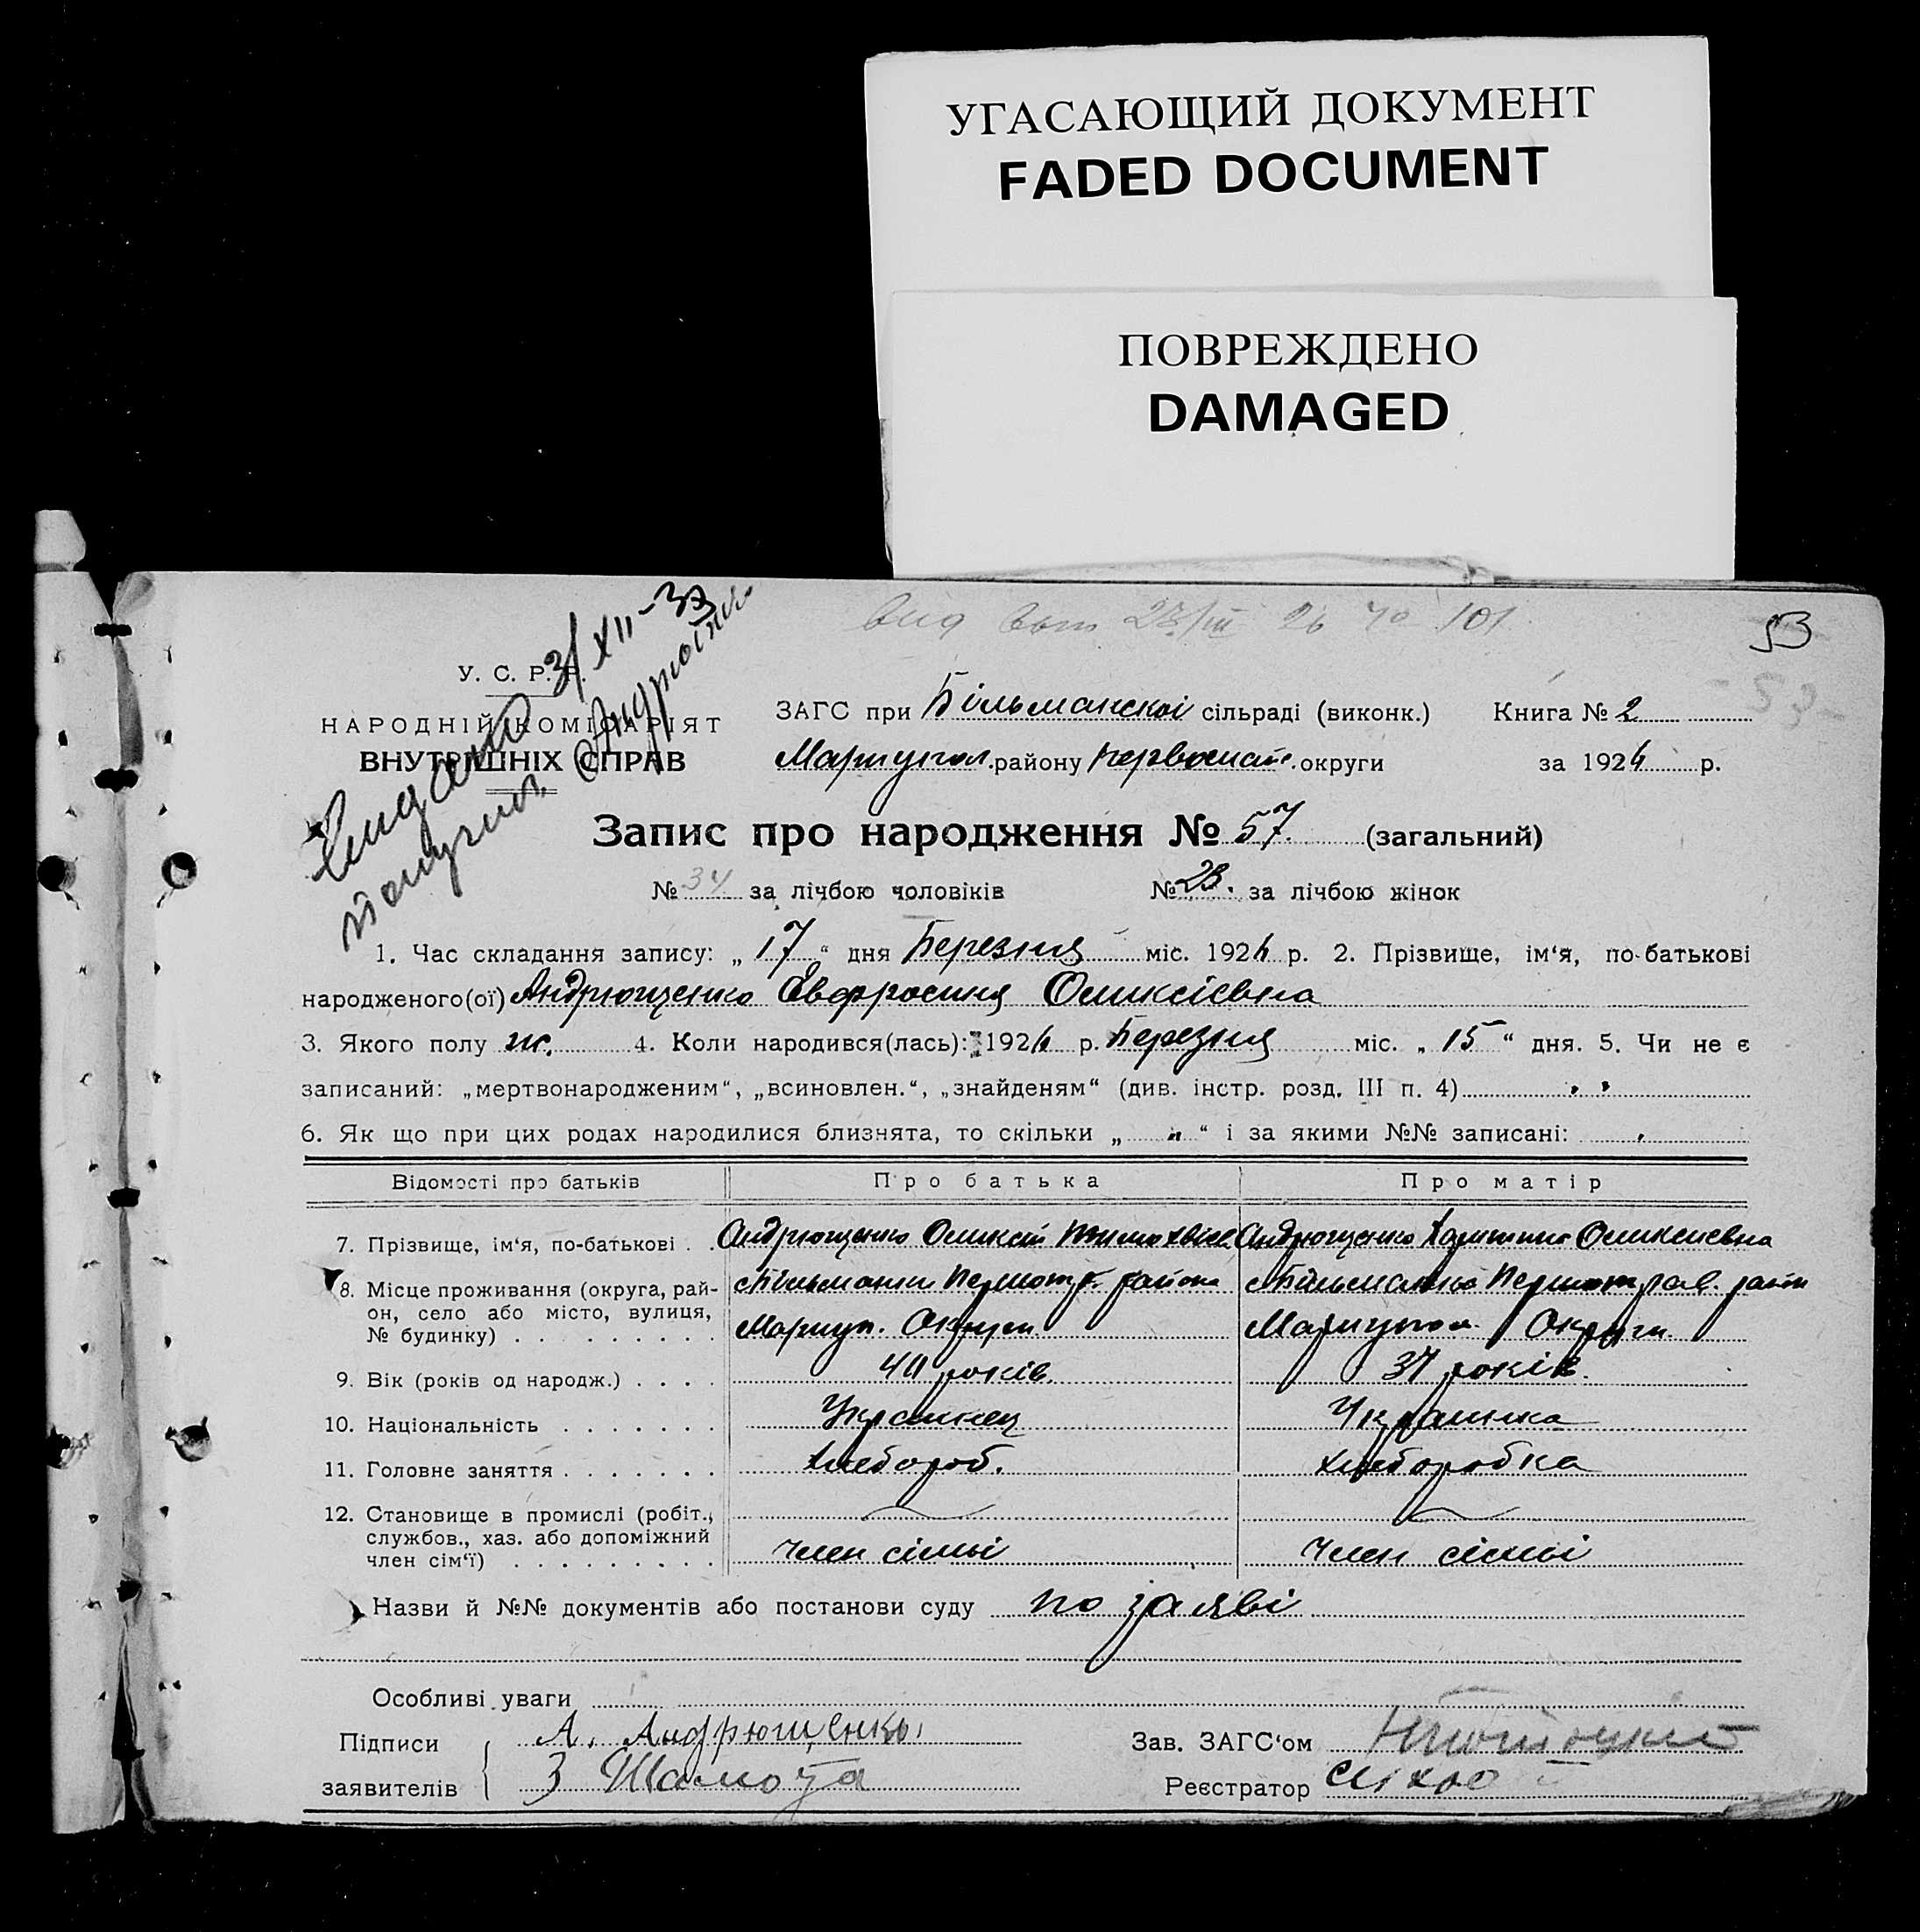 УГАСАЮЩИЙ ДОКУМЕНТ
FADED DOCUMENT
ПОВРЕЖДЕНО
DAMAGED
53
У. С. Р. Р.
НАРОДНІЙ КОМІСАРІЯТ
ВНУТРІШНІХ СПРАВ
31/XII-33
ЗАГС при Більманскоі сільраді (виконк.) Книга № 2
Мариупол. району округи за 1926 р.
Запис про народження № 57. (загальний)
№ 34 за лічбою чоловіків № 23. за лічбою жінок
1. Час складання запису: „ 17 “ дня Березня міс. 1926 р. 2. Прізвище, ім‘я, по-батькові
народженого(ої) Андрющенко Евфросиня Оликсієвна
3. Якого полу ж. 4. Коли народився(лась): 1926 р. Березня міс. „ 15 “ дня. 5. Чи не є
записаний: „мертвонародженим“, „всиновлен.“, „знайденям“ (див. інстр. розд. III п. 4)
6. Як що при цих родах народилися близнята, то скільки „ „ “ і за якими №№ записані:
Відомості про батьків Про батька Про матір
7. Прізвище, ім‘я, по-батькові . . Андрющенко Оликсій Андрющенко Оликсиевна
8. Місце проживання (округа, рай-
он, село або місто, вулиця,
№ будинку) . . . . . . . . . Мариуп. Округи Мариупол. Округи
9. Вік (років од народж.) . . . . років. 37 років.
10. Національність . . . . . . . Украинец Украинка
11. Головне заняття . . . . . . . Хлебороб. хлеборобка
12. Становище в промислі (робіт.,
службов., хаз. або допоміжний
член сім‘ї) . . . . . . . . . член сімьі член сімьі
Назви й №№ документів або постанови суду по заяві
Особливі уваги
Підписи А. Андрющенко Зав. ЗАГС‘ом
заявителів З Шамота Реєстратор